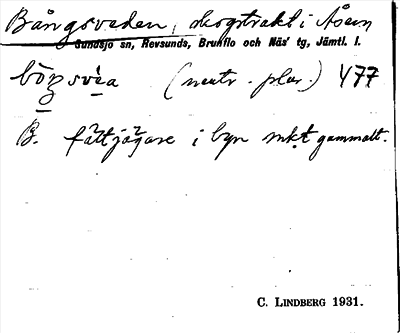 Bångsveden, skogstrakt i Åsen
Sundsjö sn, Revsunds, Brunflo och Näs' tg, Jämtl. l.
(neutr. plur.) 477
B. fättjägare i byn mkt gammalt.
C. LINDBERG 1931.